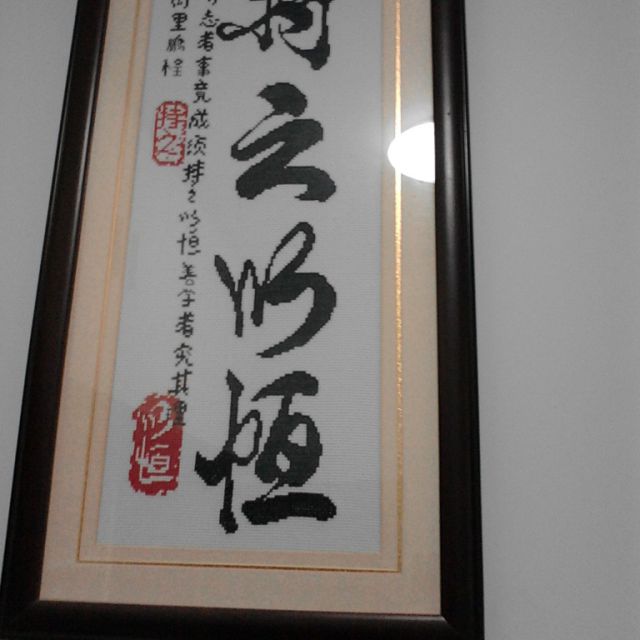 持之以恒
有志者事竟成须持之以恒善学者究其理
里鹏程
持之
以恒